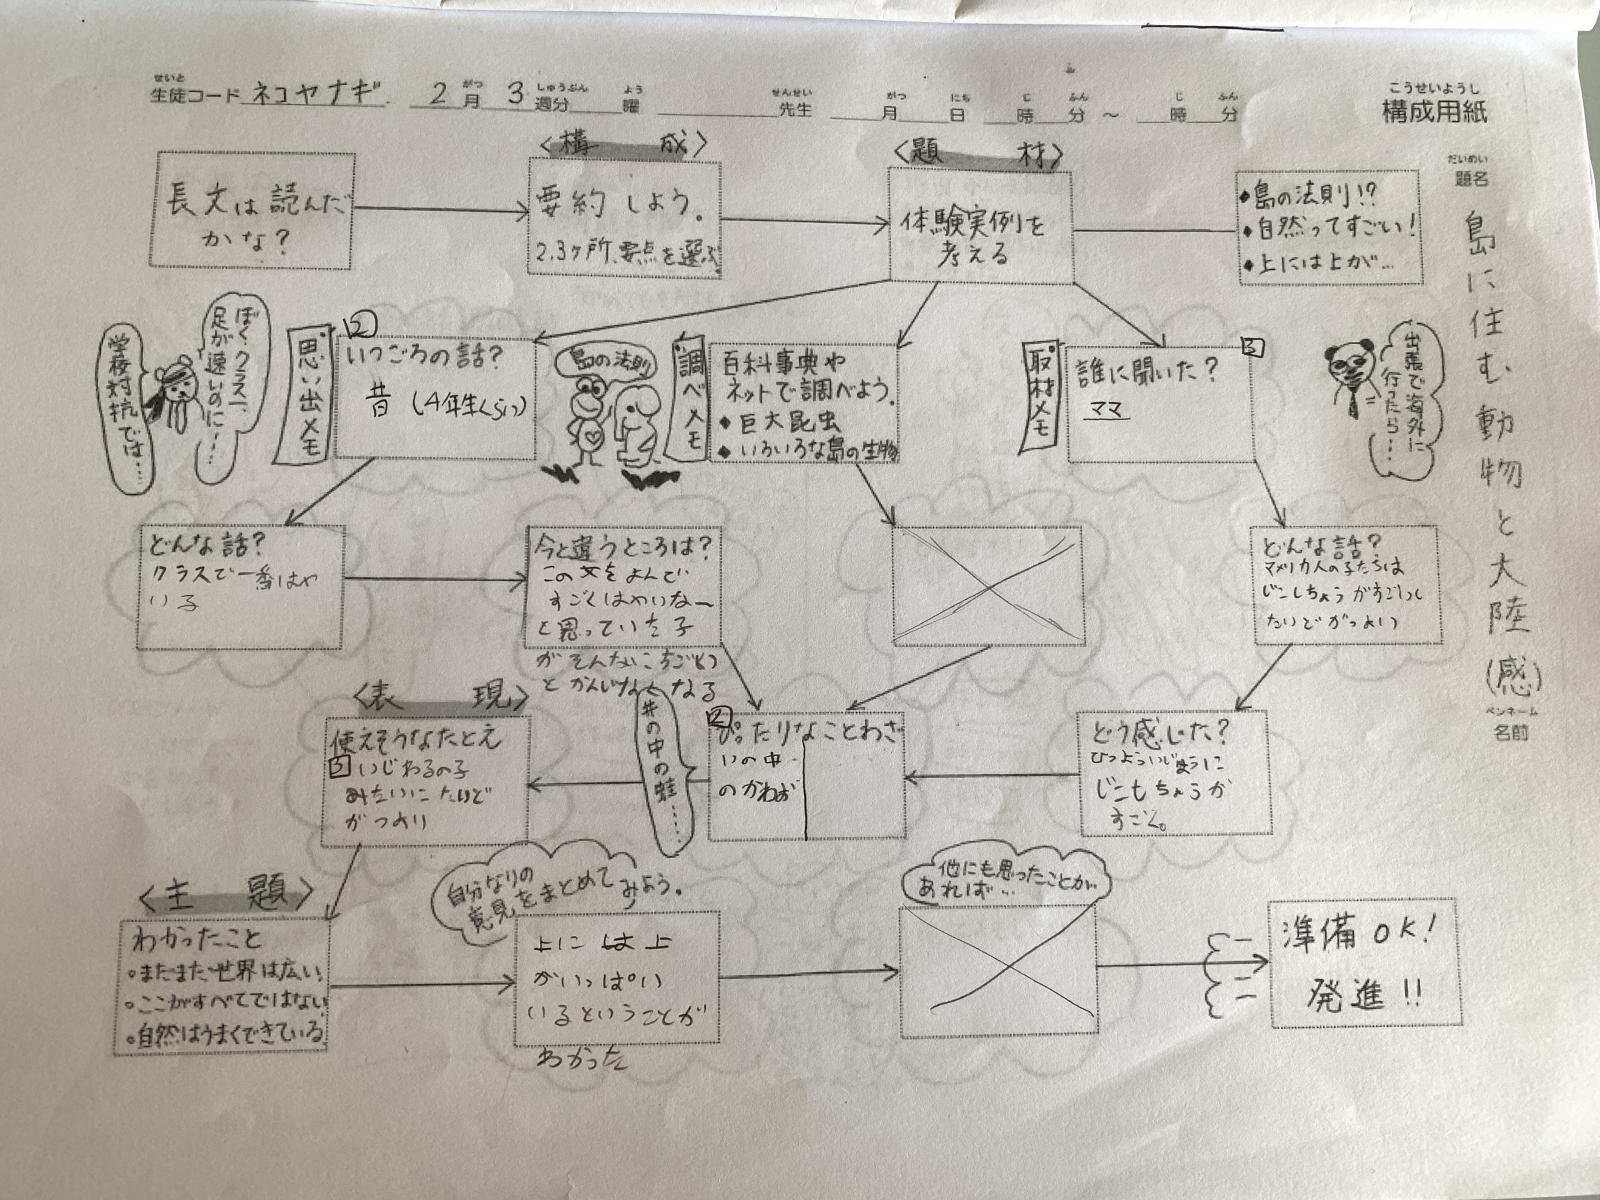 生徒コード ネコヤナギ 2月 3週分 曜 先生 月 日 時 分 ～ 時 分
せいと がつ しゅうぶん よう せんせい がつ にち じ ふん じ ふん
こうせいようし
構成用紙
だいめい
題名
島に住む動物と大陸(感)
ペンネーム
名前
長文は読んだ
かな?
<構成>
要約しよう。
2.3ヶ所、要点を選ぶ
<題材>
体験実例を
考える
◆島の法則!?
◆自然ってすごい!
◆上には上が…
学校対抗では…
ぼく、クラス一、
足が速いのに…
思い出メモ
2
いつごろの話?
昔 (4年生くらい)
島の法則
調べメモ
百科事典や
ネットで調べよう。
◆巨大昆虫
◆いろいろな島の生物
取材メモ
3
誰に聞いた?
ママ
出張で海外に
行ったら…
どんな話?
クラスで一番はや
い子
今と違うところは?
この文をよんで
すごくはやいなー
と思っていた子
がそんな
となる
どんな話?
アメリカ人の子たちは
じこしちょうがすごいし
たいどがつよい
<表現>
使えそうなたとえ
3 いじわるの子
みたいにたいど
がつよい
井の中の蛙……
2
ぴったりなことわざ
いの中
のかわず
どう感じた?
ひつよういじょうに
じこしちょうが
すごく。
<主題>
わかったこと
◦まだまだ世界は広い
◦ここがすべてではない
◦自然はうまくできている
自分なりの
意見をまとめて
みよう。
上には上
がいっぱい
いるということが
わかった
他にも思ったことが
あれば…
準備OK!
発進!!